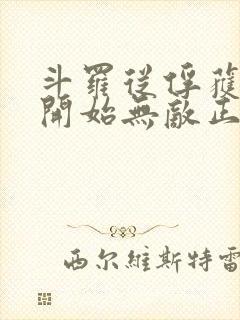 斗羅從俘獲
開始無敵正
西尔維斯特雷